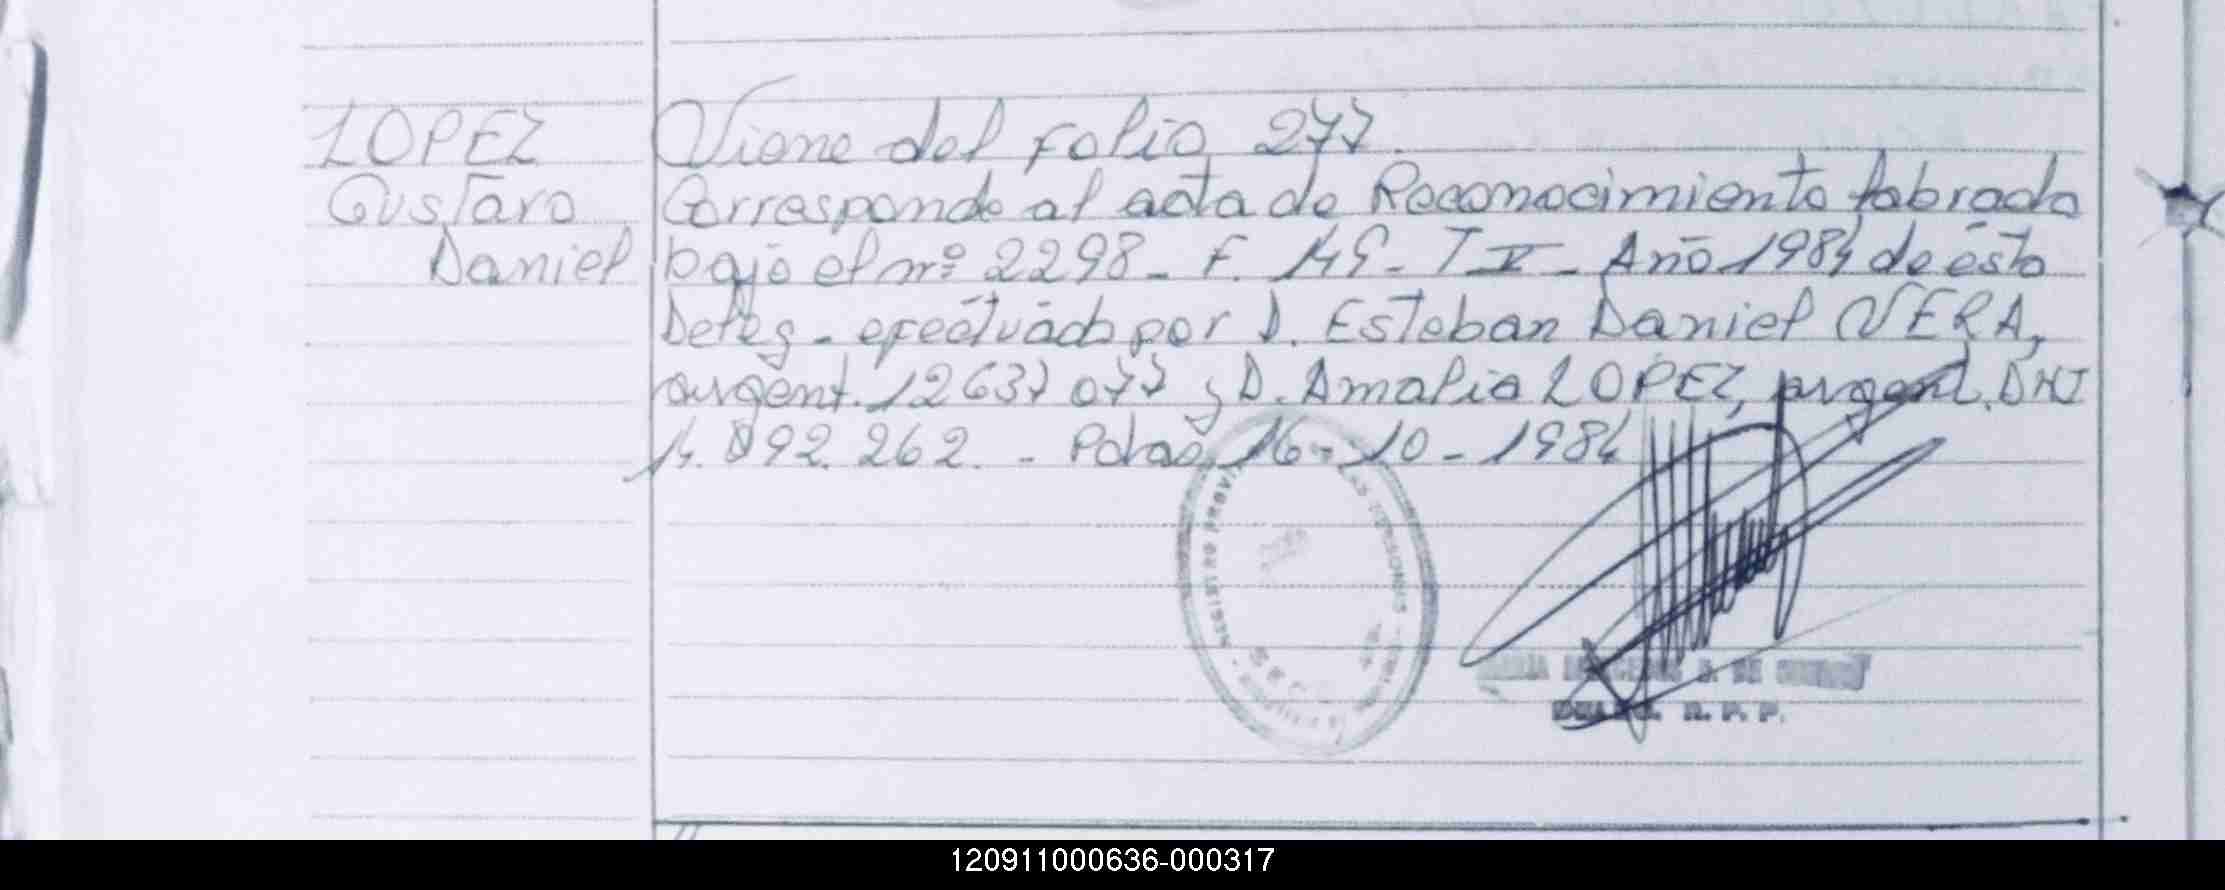 LOPEZ
Gustavo
Daniel
Viene del folio 277.
Corresponde al acta de Reconocimiento labrada
bajo el nº 2298 - F. 149 - T V - Año 1984 de ésta
Deleg - efectuado por D. Esteban Daniel VERA,
argent. 12637077 y D. Amalia LOPEZ, argent. DNI
14.092.262. - Pdas, 16 - 10 - 1984
REGISTRO
R. P. P.
120911000636-000317